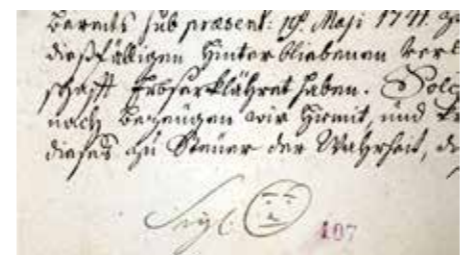 Bereits sub præsent: 19. Maji 1741. zu
dießfälligen Hinterbliebenen Verl
schafft Erbserklähret haben. Solc
nach bezeugen wir hiemit, und kr
dieses zu Steuer der Wahrheit, d
Sigl:
107